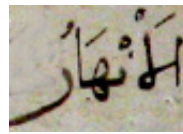 الَأَنْهَارُ